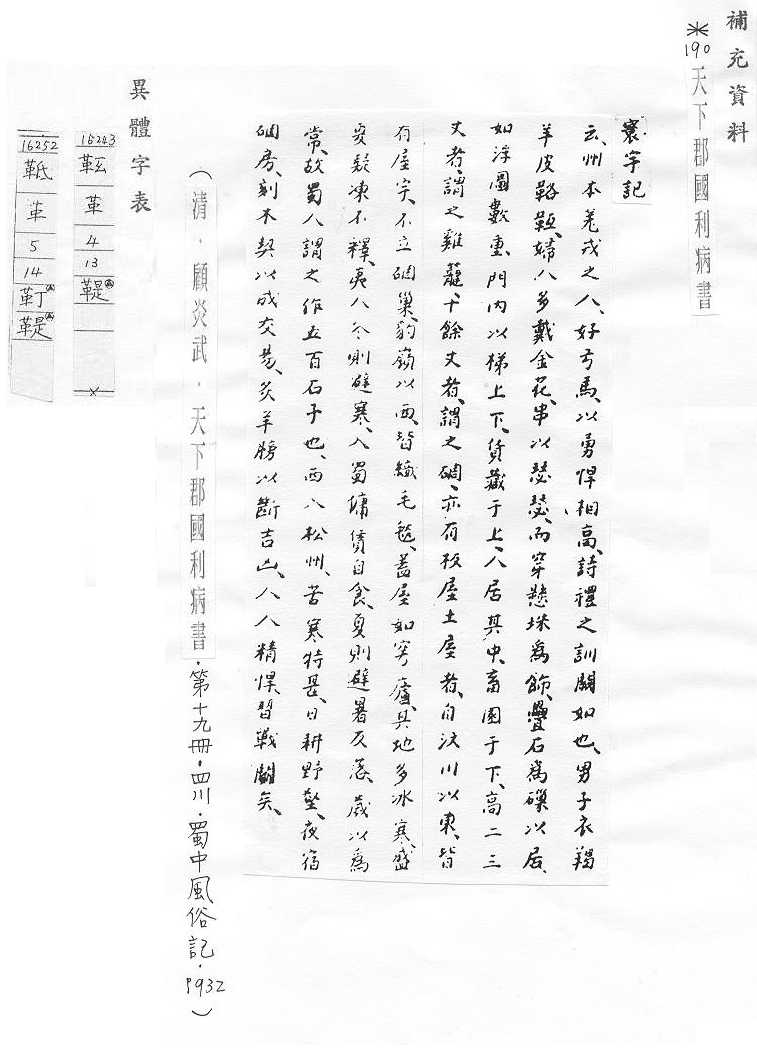 補充資料
※190 天下郡國利病書
寰宇記
云、州本羌戎之人、好弓馬、以勇悍相高、詩禮之訓闕如也、男子衣羖
羊皮鞈鞮、婦人多戴金花、串以瑟瑟、而穿懸珠為飾、疊石為礫以居、
如浮圖數重、門內以梯上下、貨藏于上、人居其中、畜圂于下、高二三
丈者、謂之雞籠、十餘丈者、謂之碉、亦有板屋土屋者、自汶川以東、皆
有屋宇、不立碉巢、豹嶺以西、皆織毛毯、蓋屋如穹廬、其地多冰寒、盛
夏凝凍不釋、夷人冬則避寒、入蜀傭賃自食、夏則避暑反落、歲以為
常、故蜀人謂之作五百石子也、西入松州、苦寒特甚、日耕野壑、夜宿
碉房、刻木契以成交易、炙羊膀以斷吉凶、人人精悍習戰鬪矣、
（清．顧炎武．天下郡國利病書．第十九冊．四川．蜀中風俗記．P932）
異體字表
16243
鞋
革
4
13
鞮
16252
䩚
革
5
14
靪
鞮